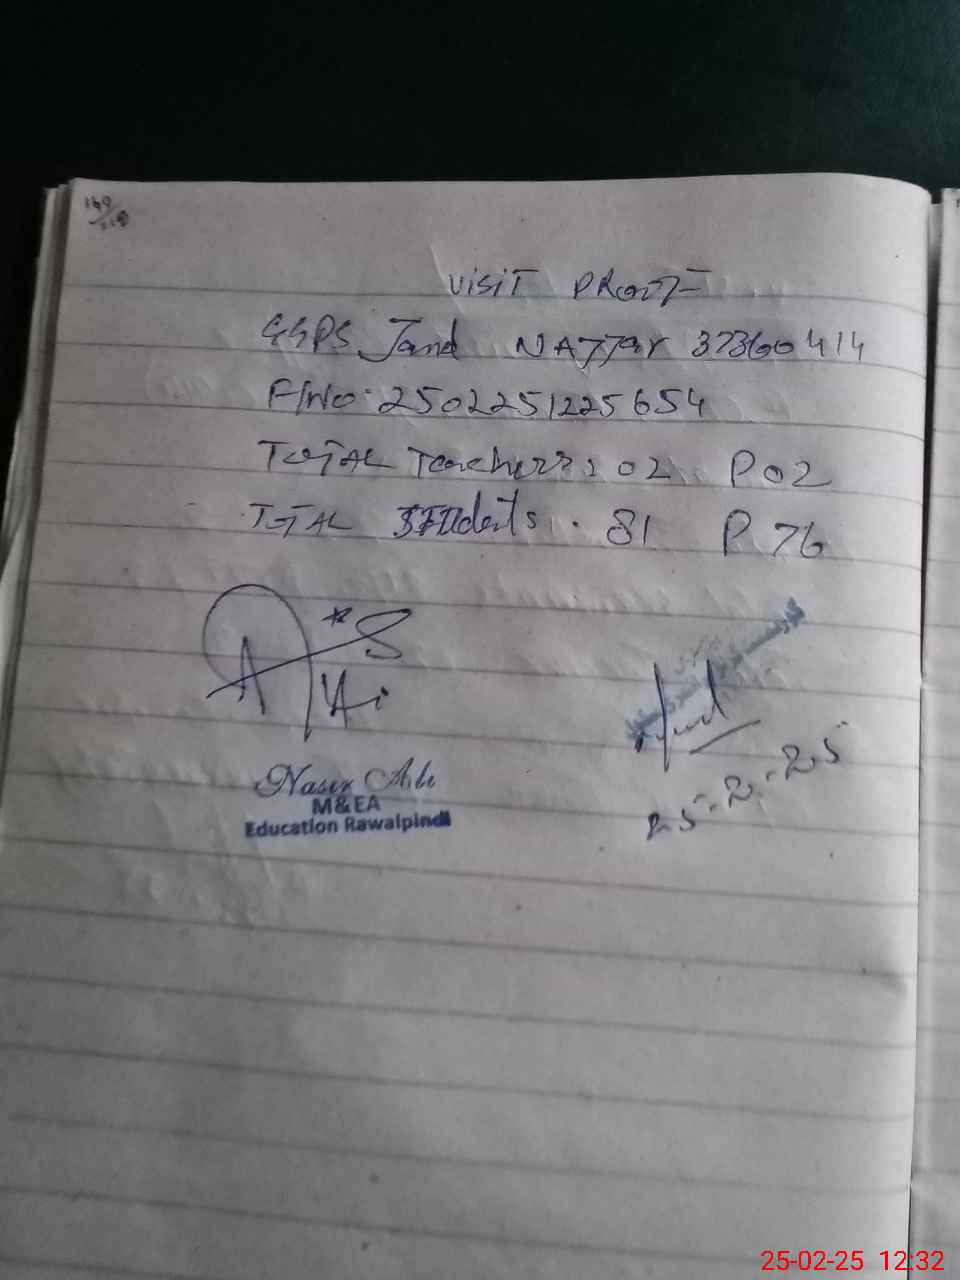 VISIT PROOF
GGPS Jand NAJJAR 37360414
F/No. 2502251225654
TOTAL Teachers: 02 P 02
TOTAL STUdents. 81 P 76
Nasir Ali
M&EA
Education Rawalpindi
25-2-25
25-02-25 12:32